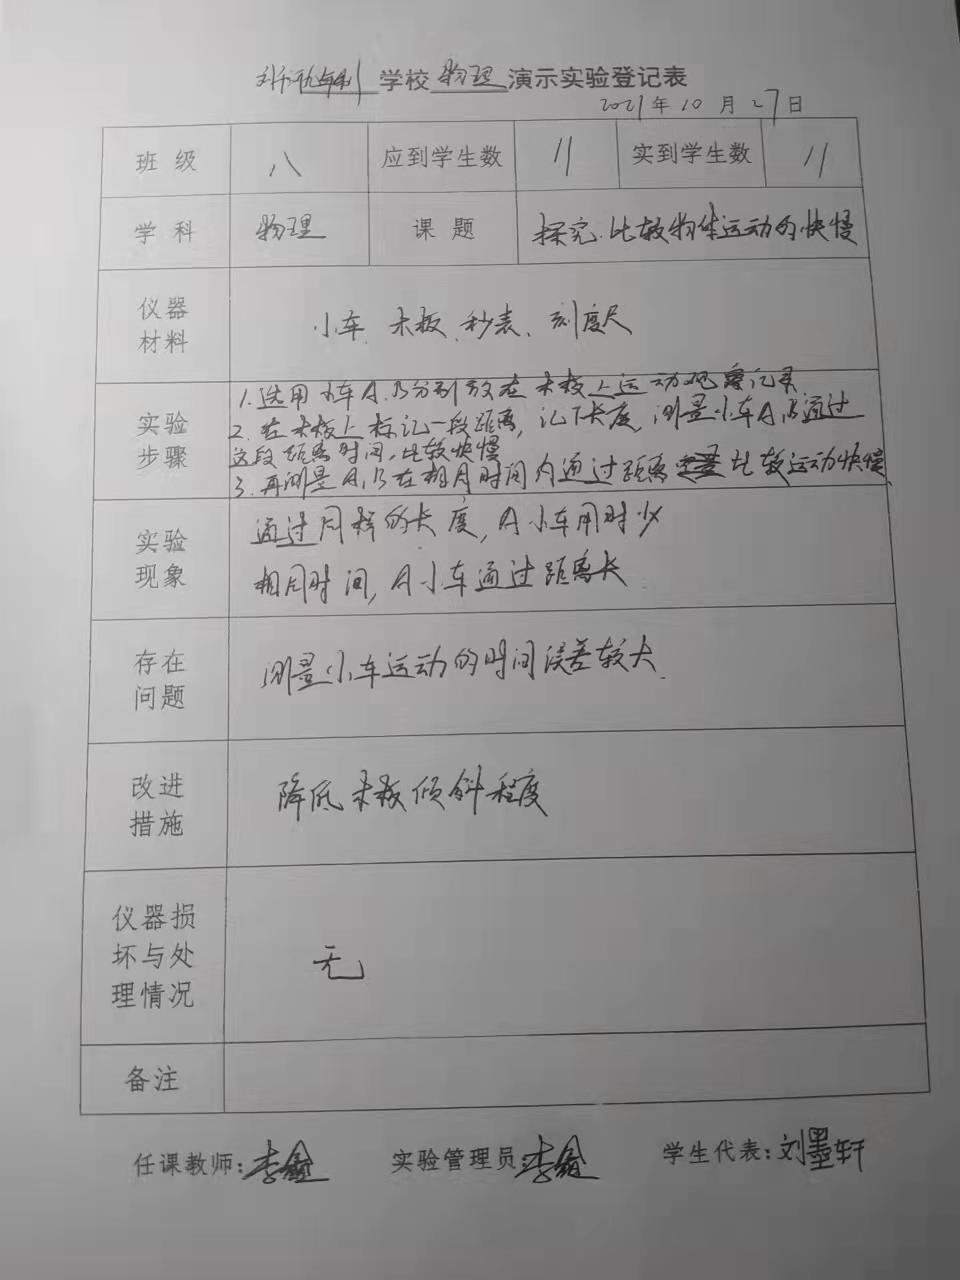 学校 物理 演示实验登记表
2021年10月27日
班级 八 应到学生数 11 实到学生数 11
学科 物理 课题 探究比较物体运动的快慢
仪器材料 小车、木板、秒表、刻度尺
实验步骤
1.选用小车A、B分别放在木板上运动观察记录.
2.在木板上标记一段距离,记下长度,测量小车A、B通过
这段距离时间,比较快慢
3.再测量A、B在相同时间内通过距离 比较运动快慢.
实验现象
通过同样的长度,A小车用时少
相同时间,A小车通过距离长
存在问题 测量小车运动的时间误差较大.
改进措施 降低木板倾斜程度
仪器损坏与处理情况 无
备注
任课教师:李鑫 实验管理员:李鑫 学生代表:刘墨轩